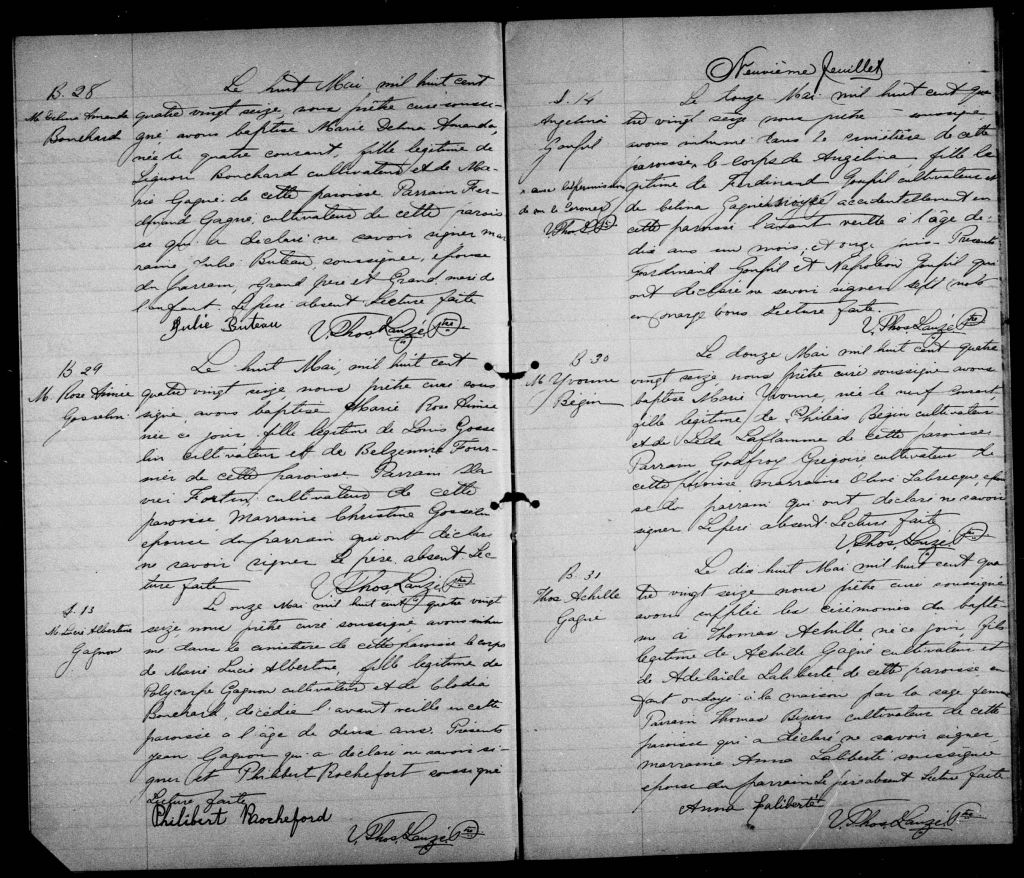 B. 28
M. Delina Amanda
Bouchard
Le huit Mai, mil huit cent
quatre vingt seize, nous prêtre curé soussi-
gné avons baptisé Marie Delina Amanda,
née le quatre courant, fille légitime de
Bouchard cultivateur et de Ma-
rie Gagné de cette paroisse Parrain Fer-
dinand Gagné, cultivateur de cette parois
se qui a déclaré ne savoir signer mar
raine, Julie Buteau, soussignée, épouse
du parrain, Grand père et Grand mère de
l'enfant. Le père absent Lecture faite
Julie Buteau V. Thos. Lauzé, Ptre
B 29
M. Rose Aimée
Gosselin
Le huit Mai, mil huit cent
quatre vingt seize nous prêtre curé sous
signé avons baptisé Marie Rose Aimée
née ce jour, fille légitime de Louis Gosse
lin cultivateur et de Belzemire Four-
nier de cette paroisse Parrain
Fortin, cultivateur de cette
paroisse, Marraine Christine Gosselin
épouse du parrain qui ont déclaré
ne savoir signer Le père absent Lec
ture faite V. Thos. Lauzé, Ptre
S. 13
M. Lucie Albertine
Gagnon
Le onze Mai mil huit cent quatre vingt
seize, nous prêtre curé soussigné avons inhu
mé dans le cimetière de cette paroisse le corps
de Marie Lucie Albertine, fille légitime de
Polycarpe Gagnon cultivateur et de Clodia
Bouchard, décédée l'avant veille en cette
paroisse a l'âge de deux ans. Présents
Jean Gagnon qui a déclaré ne savoir si-
gner et Philibert Rochefort soussigné
Lecture faite
Philibert Rocheford
V. Thos. Lauzé, Ptre
Neuvième feuillet
S. 14
Angelina
Gonful
x avec la permission
de mr le Coroner
V. Thos. L. Ptre
Le Mai mil huit cent qua
tre vingt seize nous prêtre soussigné
avons inhumé dans le cimetière de cette
paroisse, x le corps de Angelina, fille lé
gitime de Ferdinand Gonful cultivateur et
de Gagné noyée accidentellement en
cette paroisse l'avant veille à l'âge de
dix ans un mois, et onze jours - Présents
Ferdinand Gonful et Napoléon Gonful qui
ont déclaré ne savoir signer sept mots
en marge bons Lecture faite.
V. Thos. Lauzé Ptre
B 30
M. Yvonne
Bégin
Le douze Mai mil huit cent quatre
vingt seize, nous prêtre curé soussigné avons
baptisé Marie Yvonne, née le neuf courant,
fille légitime de Philéas Bégin cultivateur
et de Léda Laflamme de cette paroisse
Parrain Godfroy Grégoire cultivateur de
cette paroisse marraine Olive Labrecque épou
se du parrain qui ont déclaré ne savoir
signer Le père absent Lecture faite
V. Thos. Lauzé Ptre
B. 31
Thos. Achille
Gagné
Le dix huit Mai mil huit cent qua
tre vingt seize nous prêtre curé soussigné
avons suppléé les cérémonies du baptê-
me à Thomas Achille né ce jour, fils
légitime de Achille Gagné cultivateur et
de Adelaide Laliberté de cette paroisse, en
fant ondoyé à la maison par la sage femme
Parrain Thomas cultivateur de cette
paroisse qui a déclaré ne savoir signer
marraine Anna Laliberté soussignée
épouse du parrain Le père absent Lecture faite
Anna Laliberté
V. Thos. Lauzé, Ptre